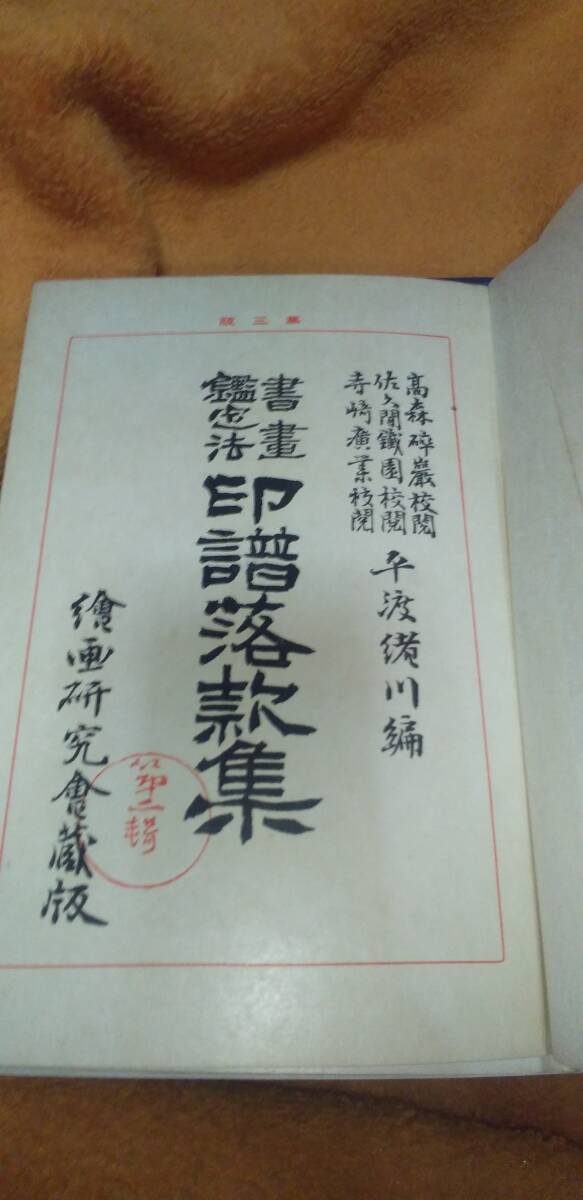 第三版
高森碎巖校閲
佐久間鐵園校閲
寺崎廣業校閲
平渡緒川編
書畫
鑑定法
印譜落款集
第二輯
繪画研究會蔵版